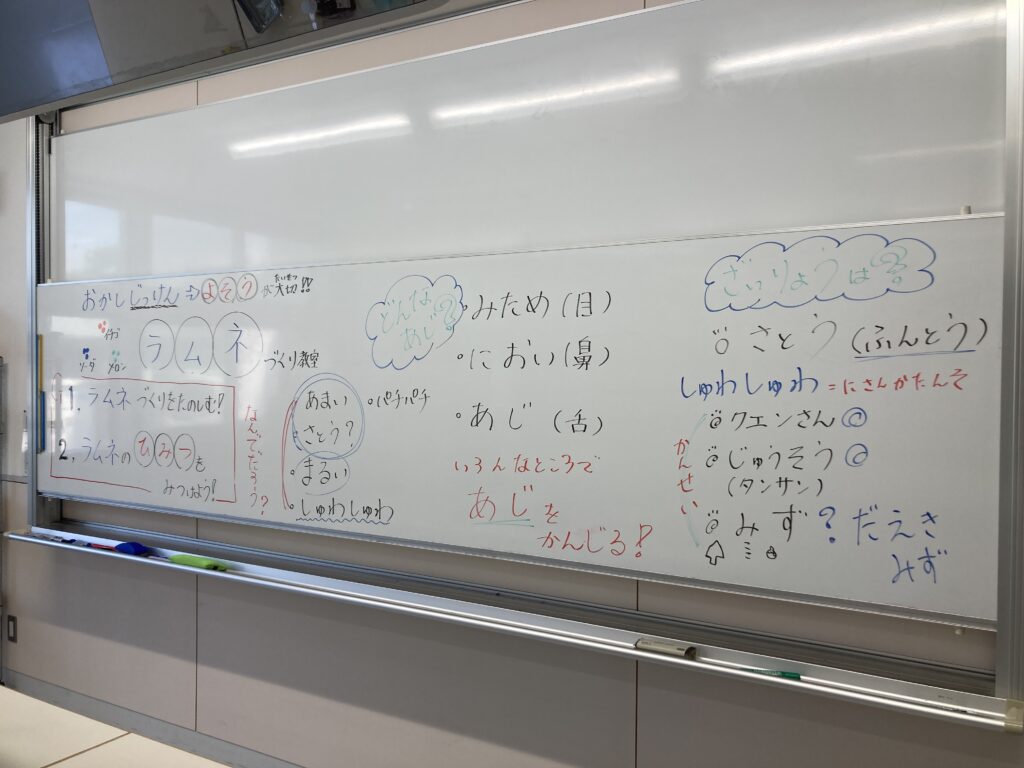 おかしじっけん⇒よそうが大切!!
たいせつ
イチゴ
ソーダ メロン
ラムネづくり教室
1. ラムネづくりをたのしむ!
2. ラムネのひみつを
みつけよう!
なんでだろう?
どんな
あじ?
あまい
・パチパチ
さとう?
・まるい
・しゅわしゅわ
・みため(目)
・におい(鼻)
・あじ(舌)
いろんなところで
あじを
かんじる!
ざいりょうは?
さとう(ふんとう)
しゅわしゅわ=にさんかたんそ
クエンさん
じゅうそう
(タンサン)
みず?だえき
みず
かんせい